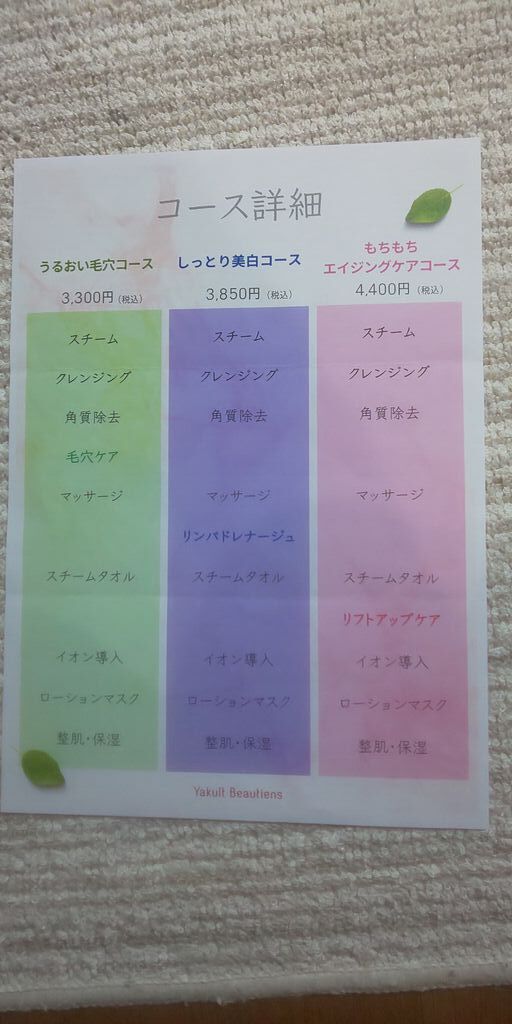 コース詳細
うるおい毛穴コース
3,300円（税込）
スチーム
クレンジング
角質除去
毛穴ケア
マッサージ
スチームタオル
イオン導入
ローションマスク
整肌・保湿
しっとり美白コース
3,850円（税込）
スチーム
クレンジング
角質除去
マッサージ
リンパドレナージュ
スチームタオル
イオン導入
ローションマスク
整肌・保湿
もちもち
エイジングケアコース
4,400円（税込）
スチーム
クレンジング
角質除去
マッサージ
スチームタオル
リフトアップケア
イオン導入
ローションマスク
整肌・保湿
Yakult Beautiens